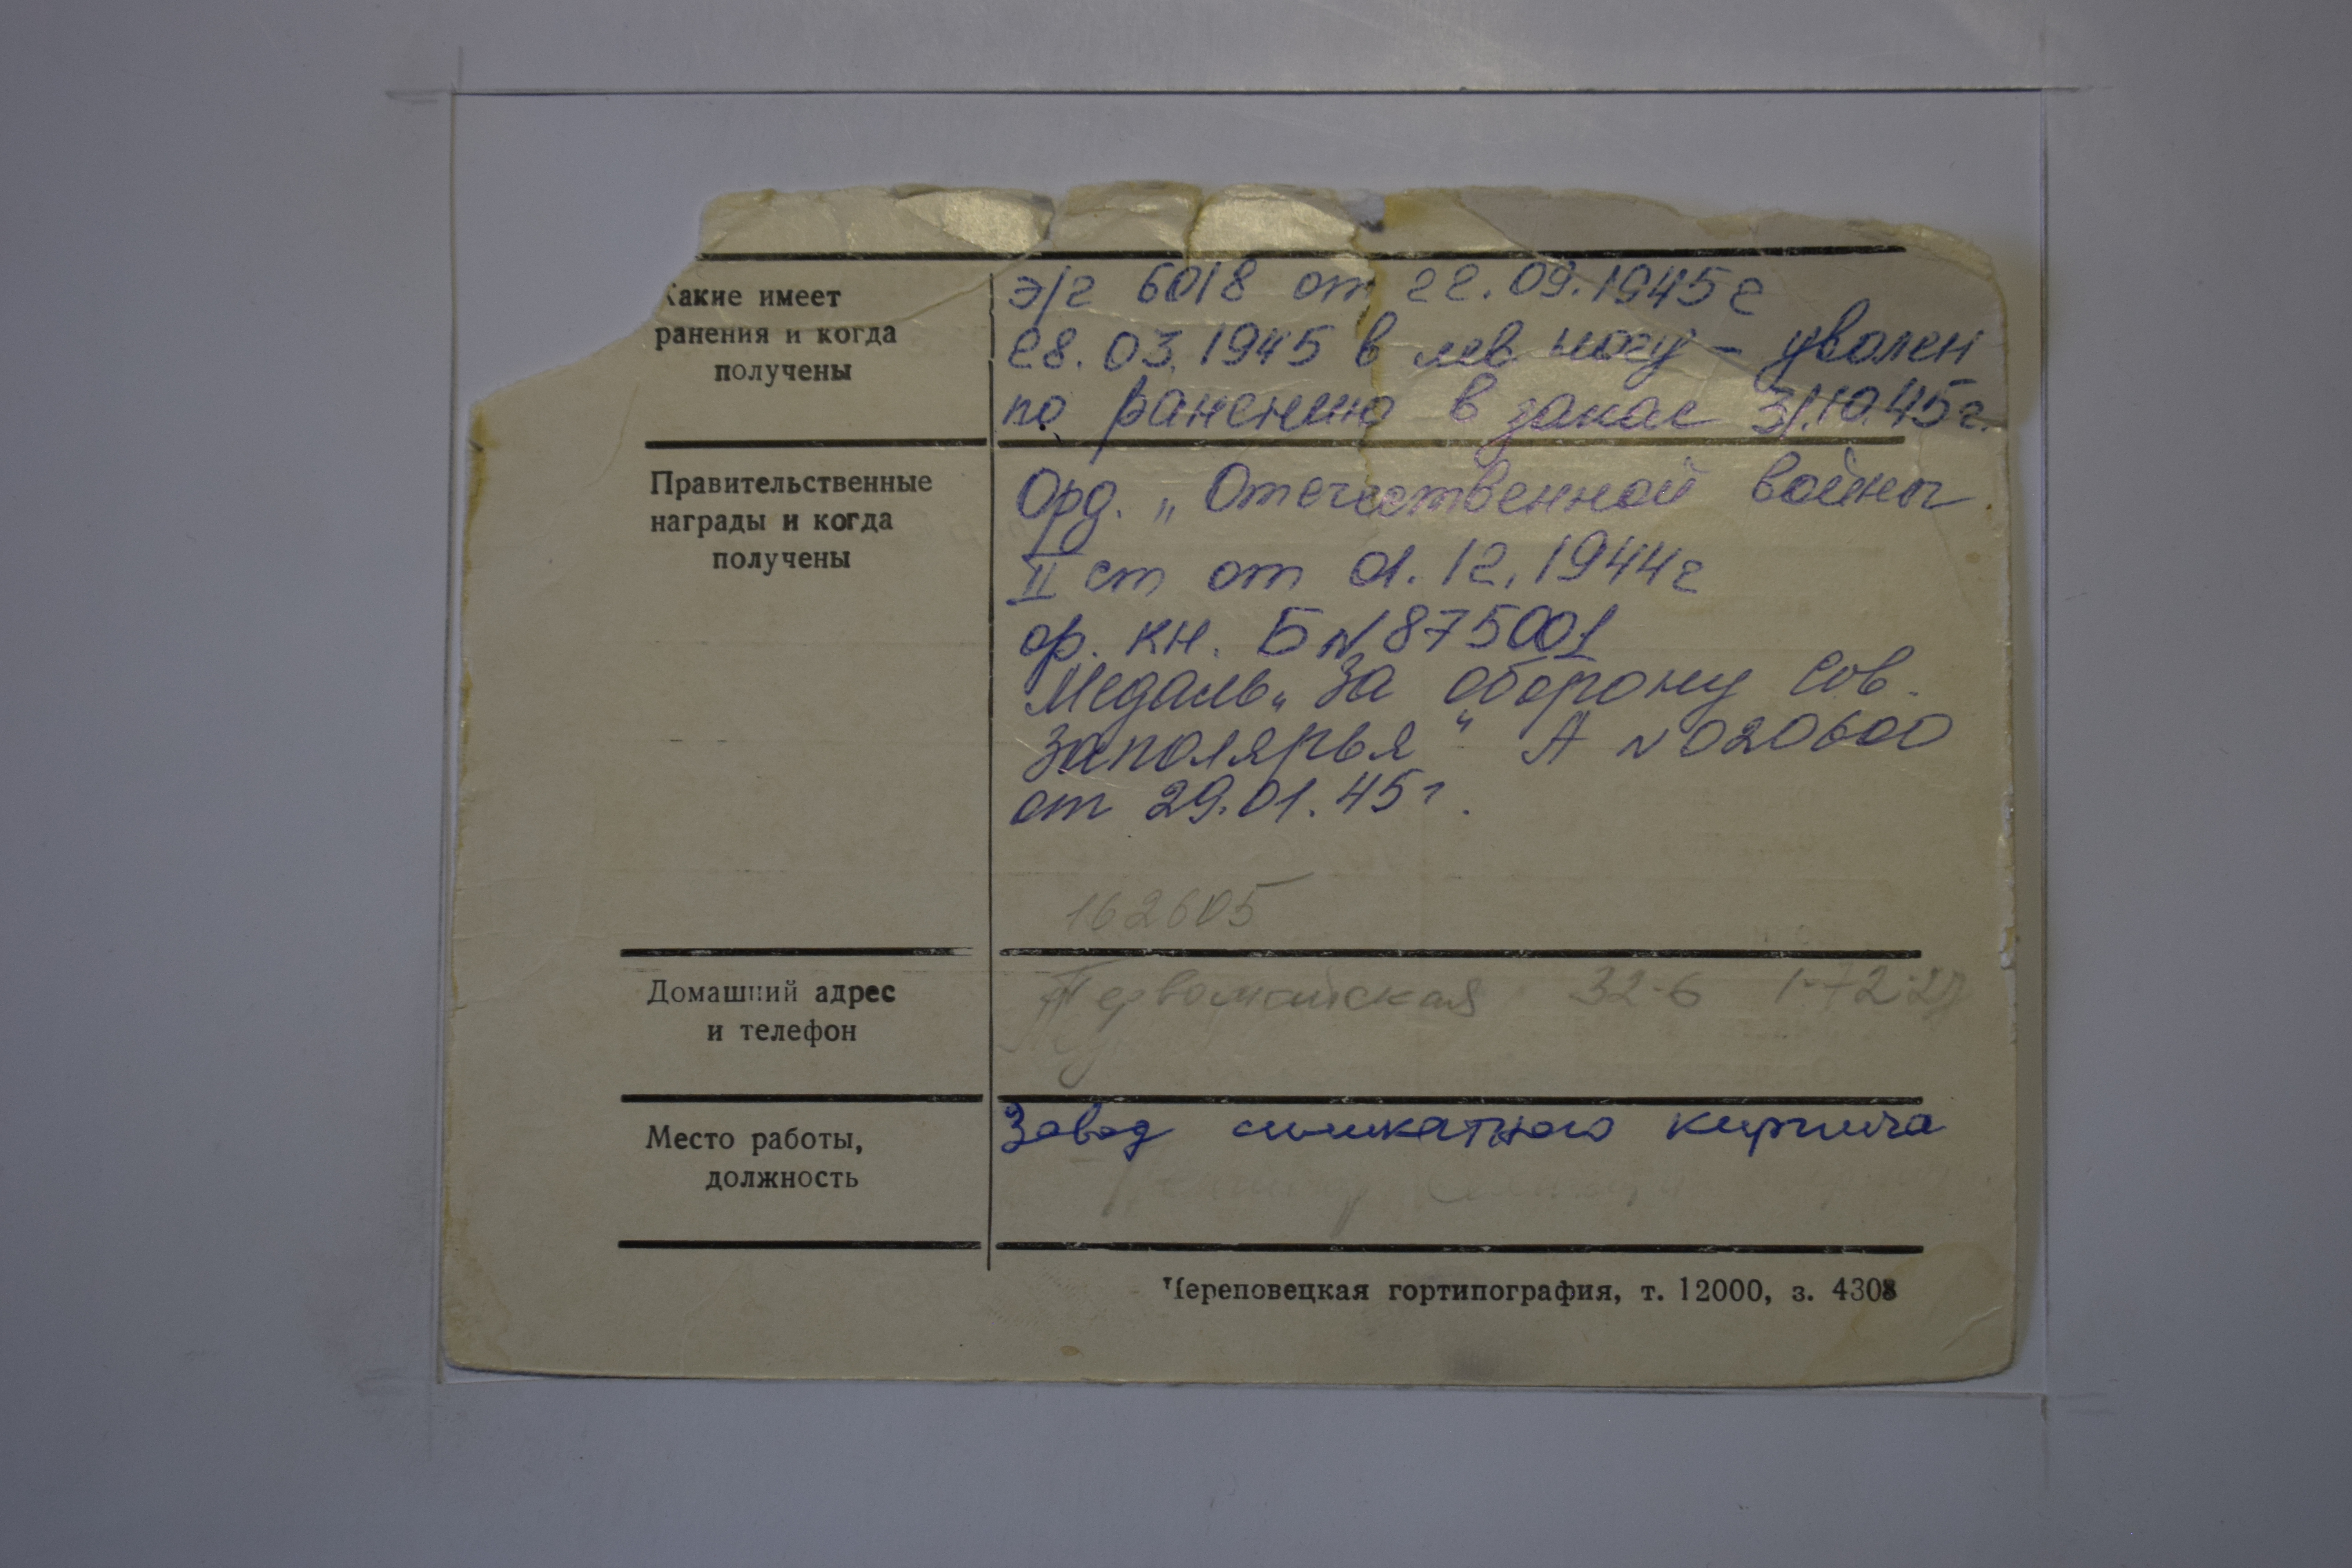 Какие имеет
ранения и когда
получены
э/г 6018 от 22.09.1945г
28.03.1945 в лев ногу – уволен
по ранению в запас 31.10.45г.
Правительственные
награды и когда
получены
Орд. „Отечественной войны
II ст от 01.12.1944г
ор. кн. Б№875001
Медаль „За оборону Сов.
Заполярья“ А №020600
от 29.01.45г.
162605
Домашний адрес
и телефон
Первомайская 32-6 1-72-27
Место работы,
должность
Завод силикатного кирпича
Череповецкая гортипография, т. 12000, з. 4308